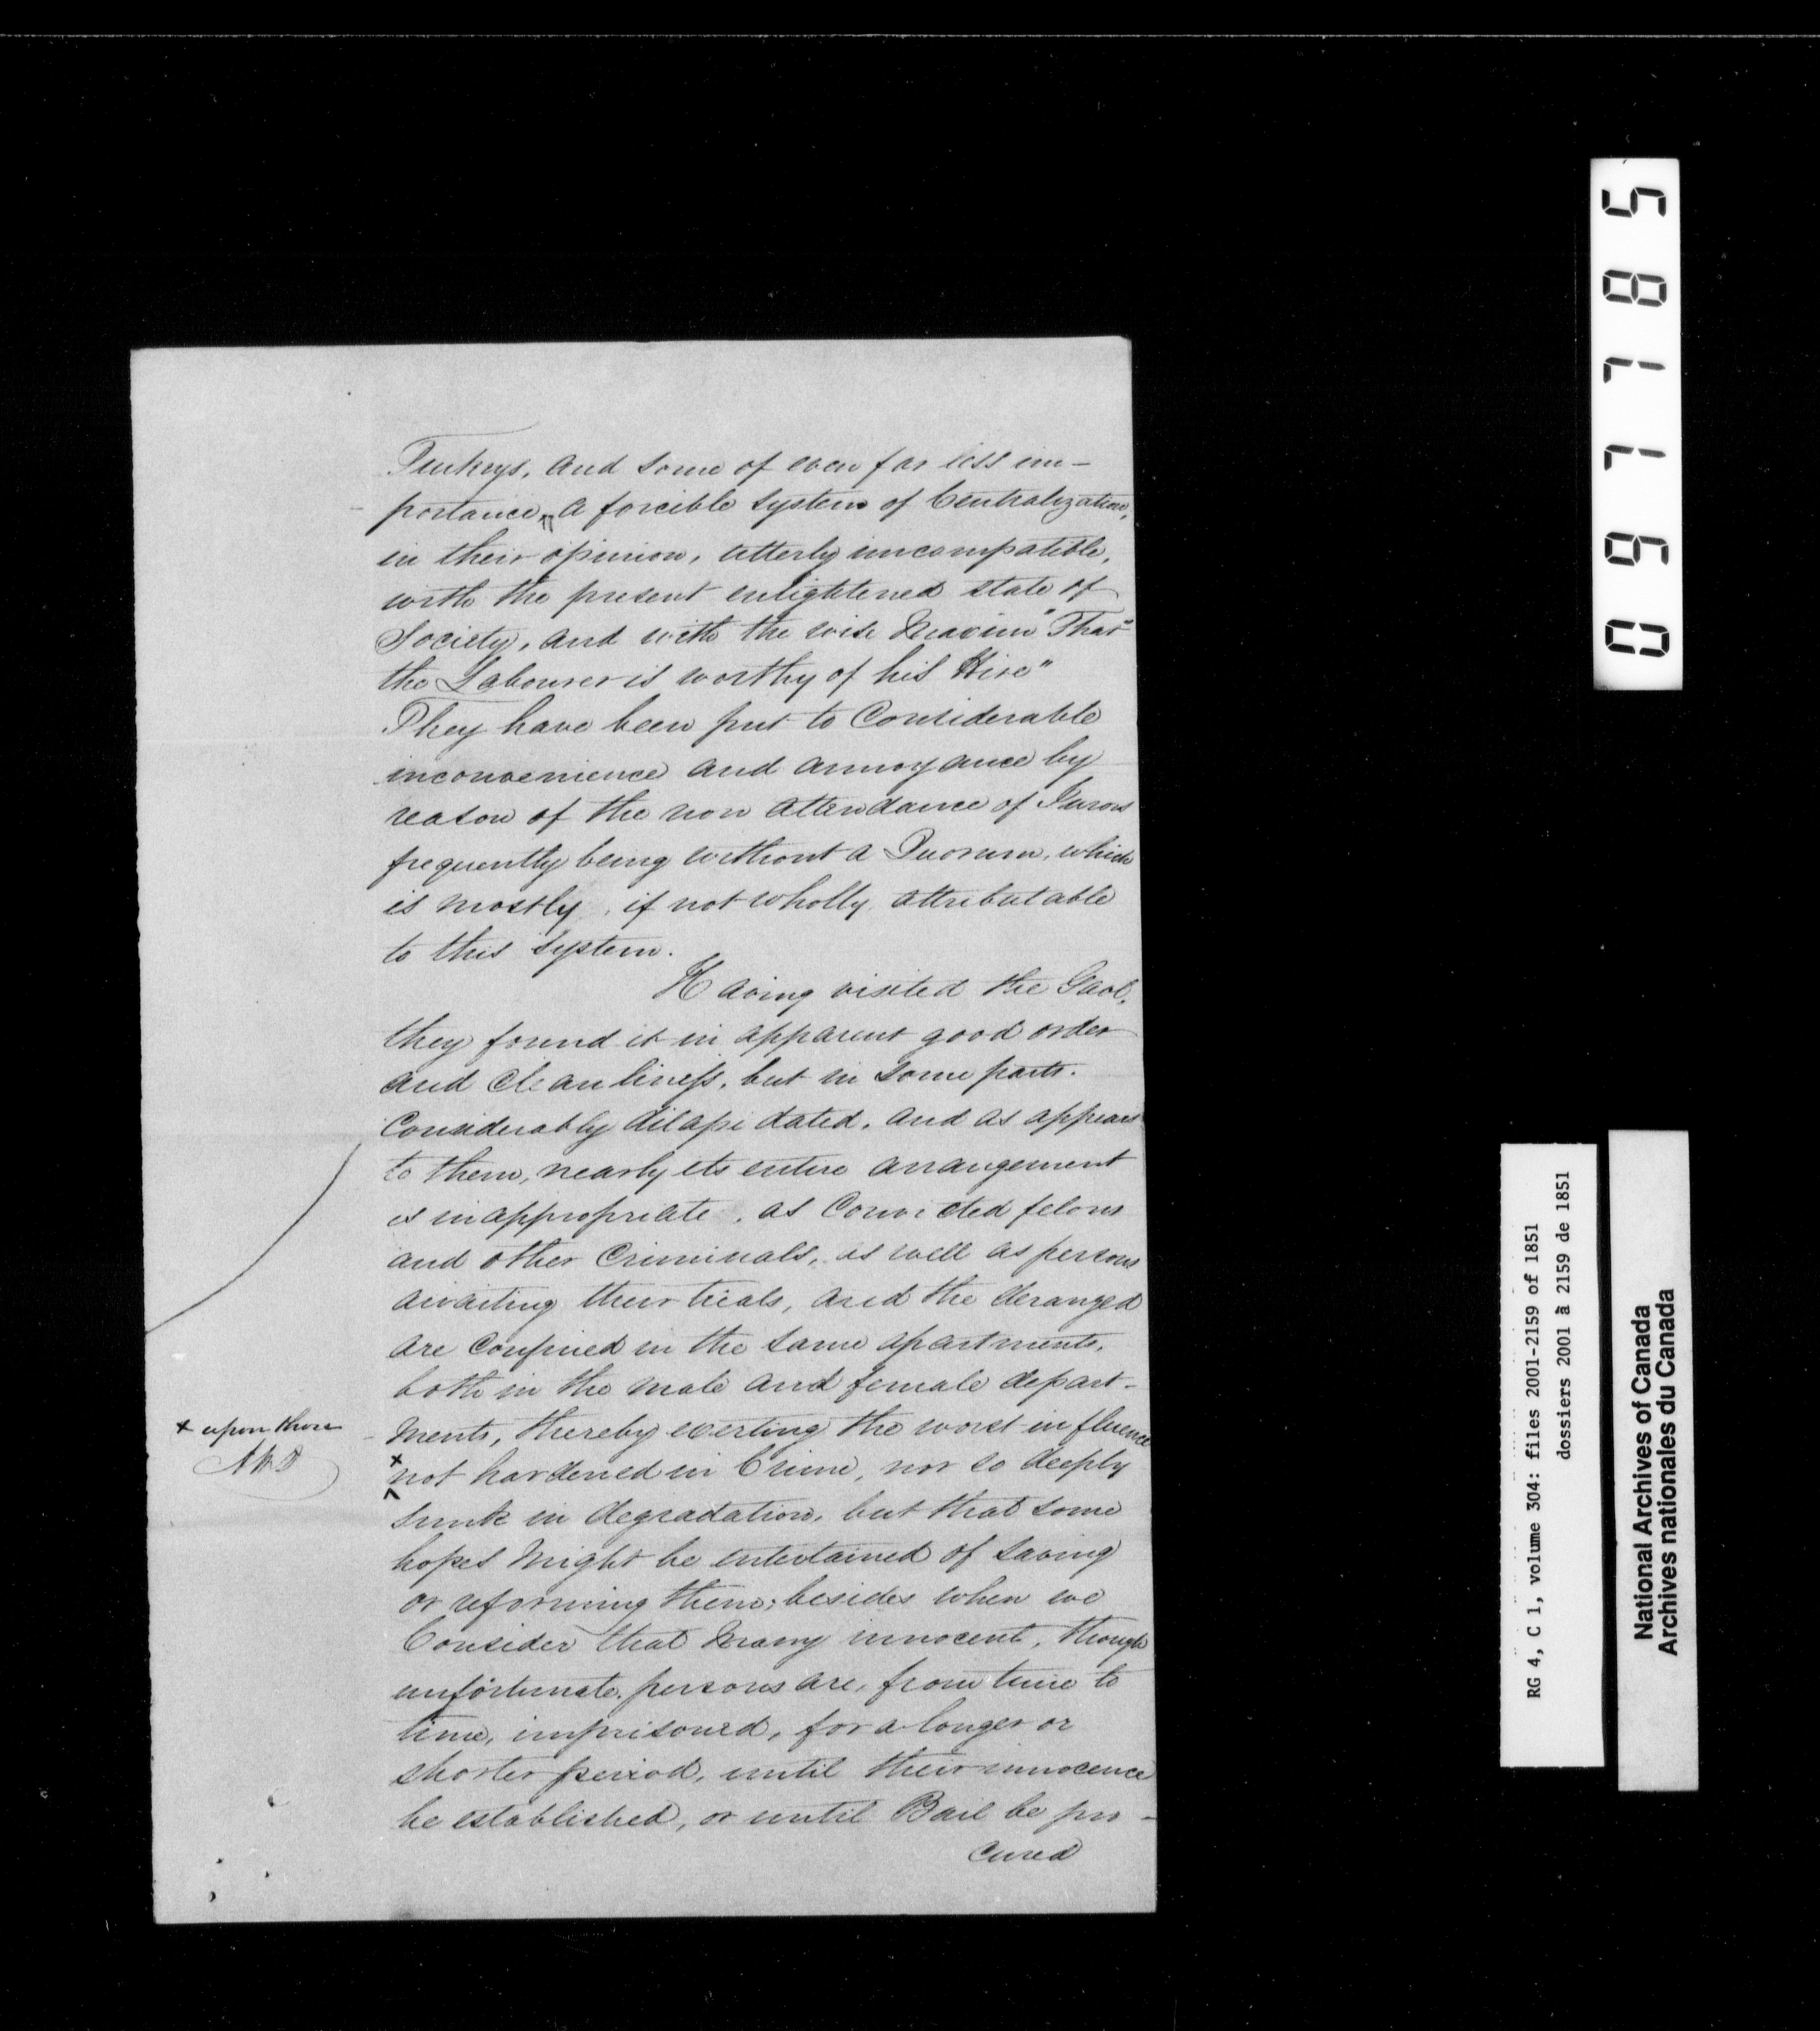 Turnkeys, and some of even far less im-
portance, „ a forcible system of Centralization,
in their opinion, utterly incompatible,
with the present enlightened state of
Society, and with the wise Maxim "That"
the Labourer is worthy of his Hire"
They have been put to Considerable
inconvenience and annoyance by
reason of the non attendance of Jurors
frequently being without a Quorum, which
is mostly, if not wholly attributable
to this system.
Having visited the Gaol,
they found it in apparent good order
and cleanliness, but in some parts.
Considerably dilapidated, and as appears
to them, nearly its entire arrangement
is inappropriate, as Convicted felons
and other Criminals, as well as persons
awaiting their trials, and the deranged
are Confined in the same apartments,
both in the male and female depart-
ments, thereby exerting the worst influence
x upon those
x not hardened in Crime, nor so deeply
sunk in degradation, but that some
hopes might be entertained of saving
or reforming them; besides when we
Consider that Many innocent, though
unfortunate, persons are, from time to
time, imprisoned, for a longer or
shorter period, until their innocence
be established, or until Bail be pro-
cured
097785
RG 4, C 1, volume 304: files 2001-2159 of 1851
dossiers 2001 à 2159 de 1851
National Archives of Canada
Archives nationales du Canada